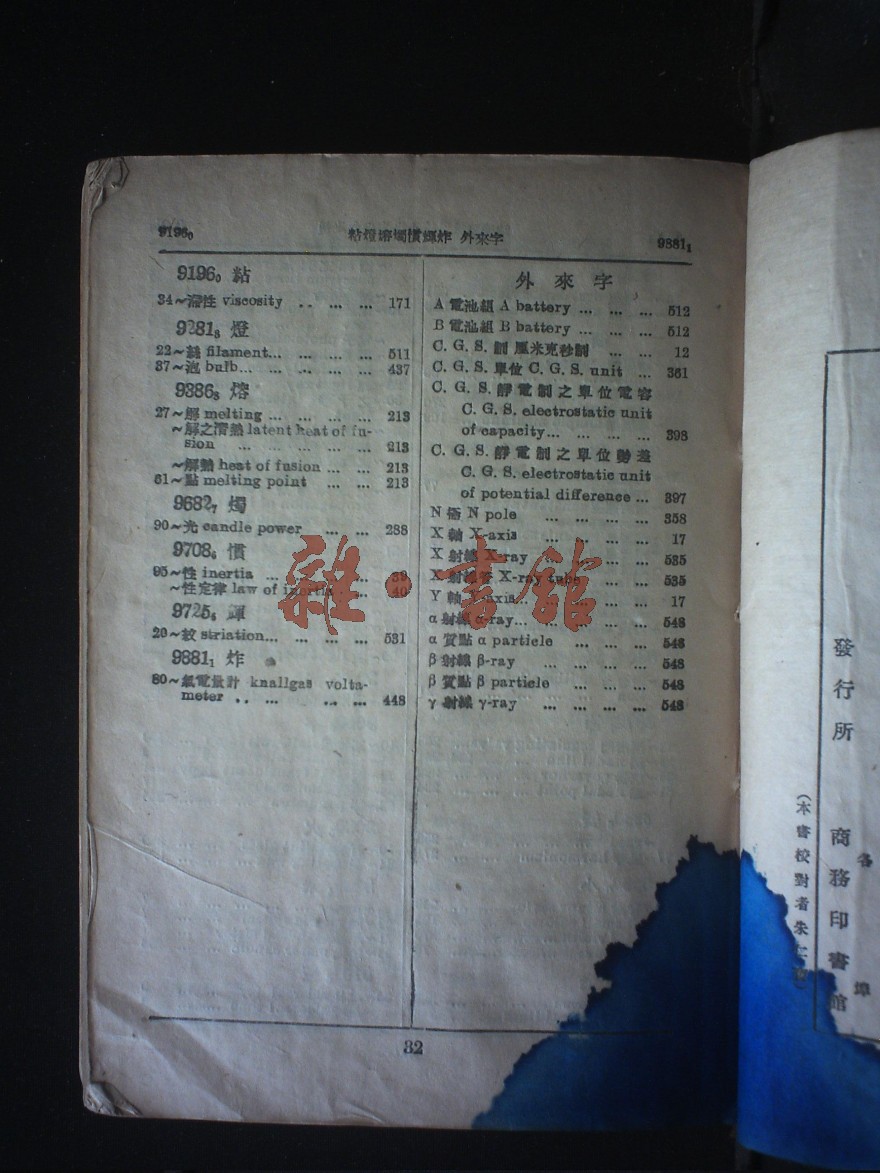 9196₀ 粘燈熔燭慣輝炸 外來字 9881₁
9196₀ 粘
34~滯性 viscosity .. ... ... 171
9281₈ 燈
22~絲 filament... ... ... ... 511
37~泡 bulb... ... ... ... ... 437
9386₈ 熔
27~解 melting ... ... ... ... 213
~解之潛熱 latent heat of fu-
sion ... ... ... ... ... 213
~解熱 heat of fusion ... ... 213
61~點 melting point ... ... 213
9682₇ 燭
90~光 candle power ... ... 288
9708₆ 慣
95~性 inertia ... ... ... 39
~性定律 law of inertia ... 40
9725₆ 輝
20~紋 striation... ... ... ... 531
9881₁ 炸
80~氣電量計 knallgas volta-
meter .. ... ... ... 448
外來字
A 電池組 A battery ... ... ... 512
B 電池組 B battery ... ... ... 512
C. G. S. 制 厘米克秒制 ... ... 12
C. G. S. 單位 C. G. S. unit ... 361
C. G. S. 靜電制之單位電容
C. G. S. electrostatic unit
of capacity... ... ... ... 398
C. G. S. 靜電制之單位勢差
C. G. S. electrostatic unit
of potential difference ... 397
N 極 N pole ... ... ... ... 358
X 軸 X-axis ... ... ... ... 17
X 射線 X-ray ... ... ... ... 535
X 射線管 X-ray tube ... ... 535
Y 軸 Y-axis... ... ... ... ... 17
α 射線 α-ray... ... ... ... ... 548
α 質點 α particle ... ... ... 548
β 射線 β-ray ... ... ... ... 548
β 質點 β particle ... ... ... 548
γ 射線 γ-ray ... ... ... ... 548
32
雜·書館
發行所 商務印書館
各埠
(本書校對者朱仁